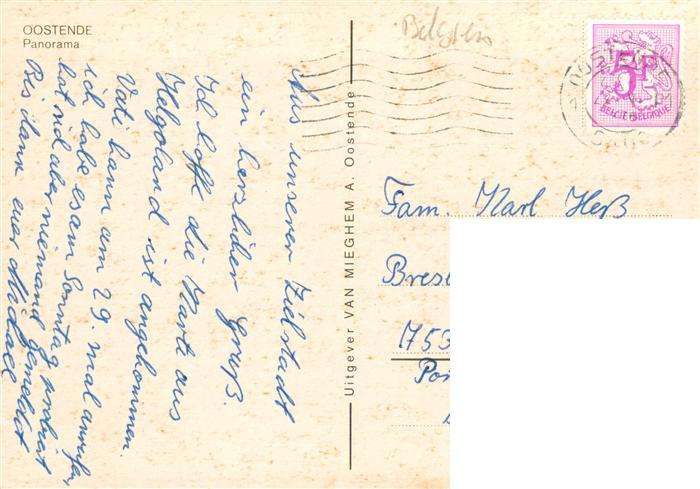 OOSTENDE
Panorama
Belgien
OOSTENDE
5F
BELGIE-BELGIQUE
Aus unserer Zielstadt
ein herzlicher Gruß.
Ich hoffe die Karte aus
Helgoland ist angekommen.
Vati kann am 29. mal anrufen,
ich habe es am Sonntag probiert
hat sich aber niemand gemeldet
Bis dann euer Michael
Uitgever VAN MIEGHEM A. Oostende
Fam. Karl Heß
Bres
753